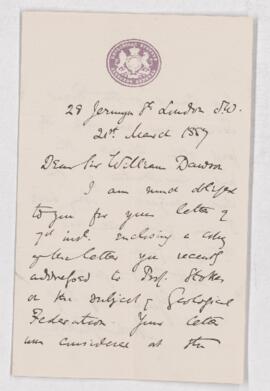 28 Jermyn St. London S.W.
21st March 1887
Dear Sir William Dawson
I am much obliged
to you for your letter of
7th inst. enclosing a copy
of the letter you recently
addressed to Prof. Stokes
on the subject of Geological
Federation Your letter
was considered at the